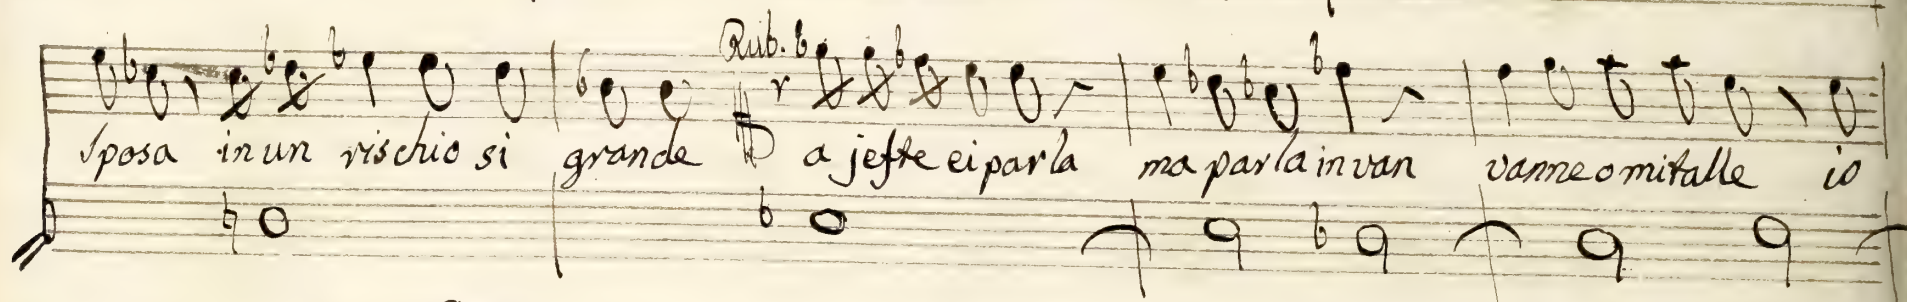 Rub.
sposa in un rischio si grande a jefte ei parla ma parla in van vanne o mitalle io